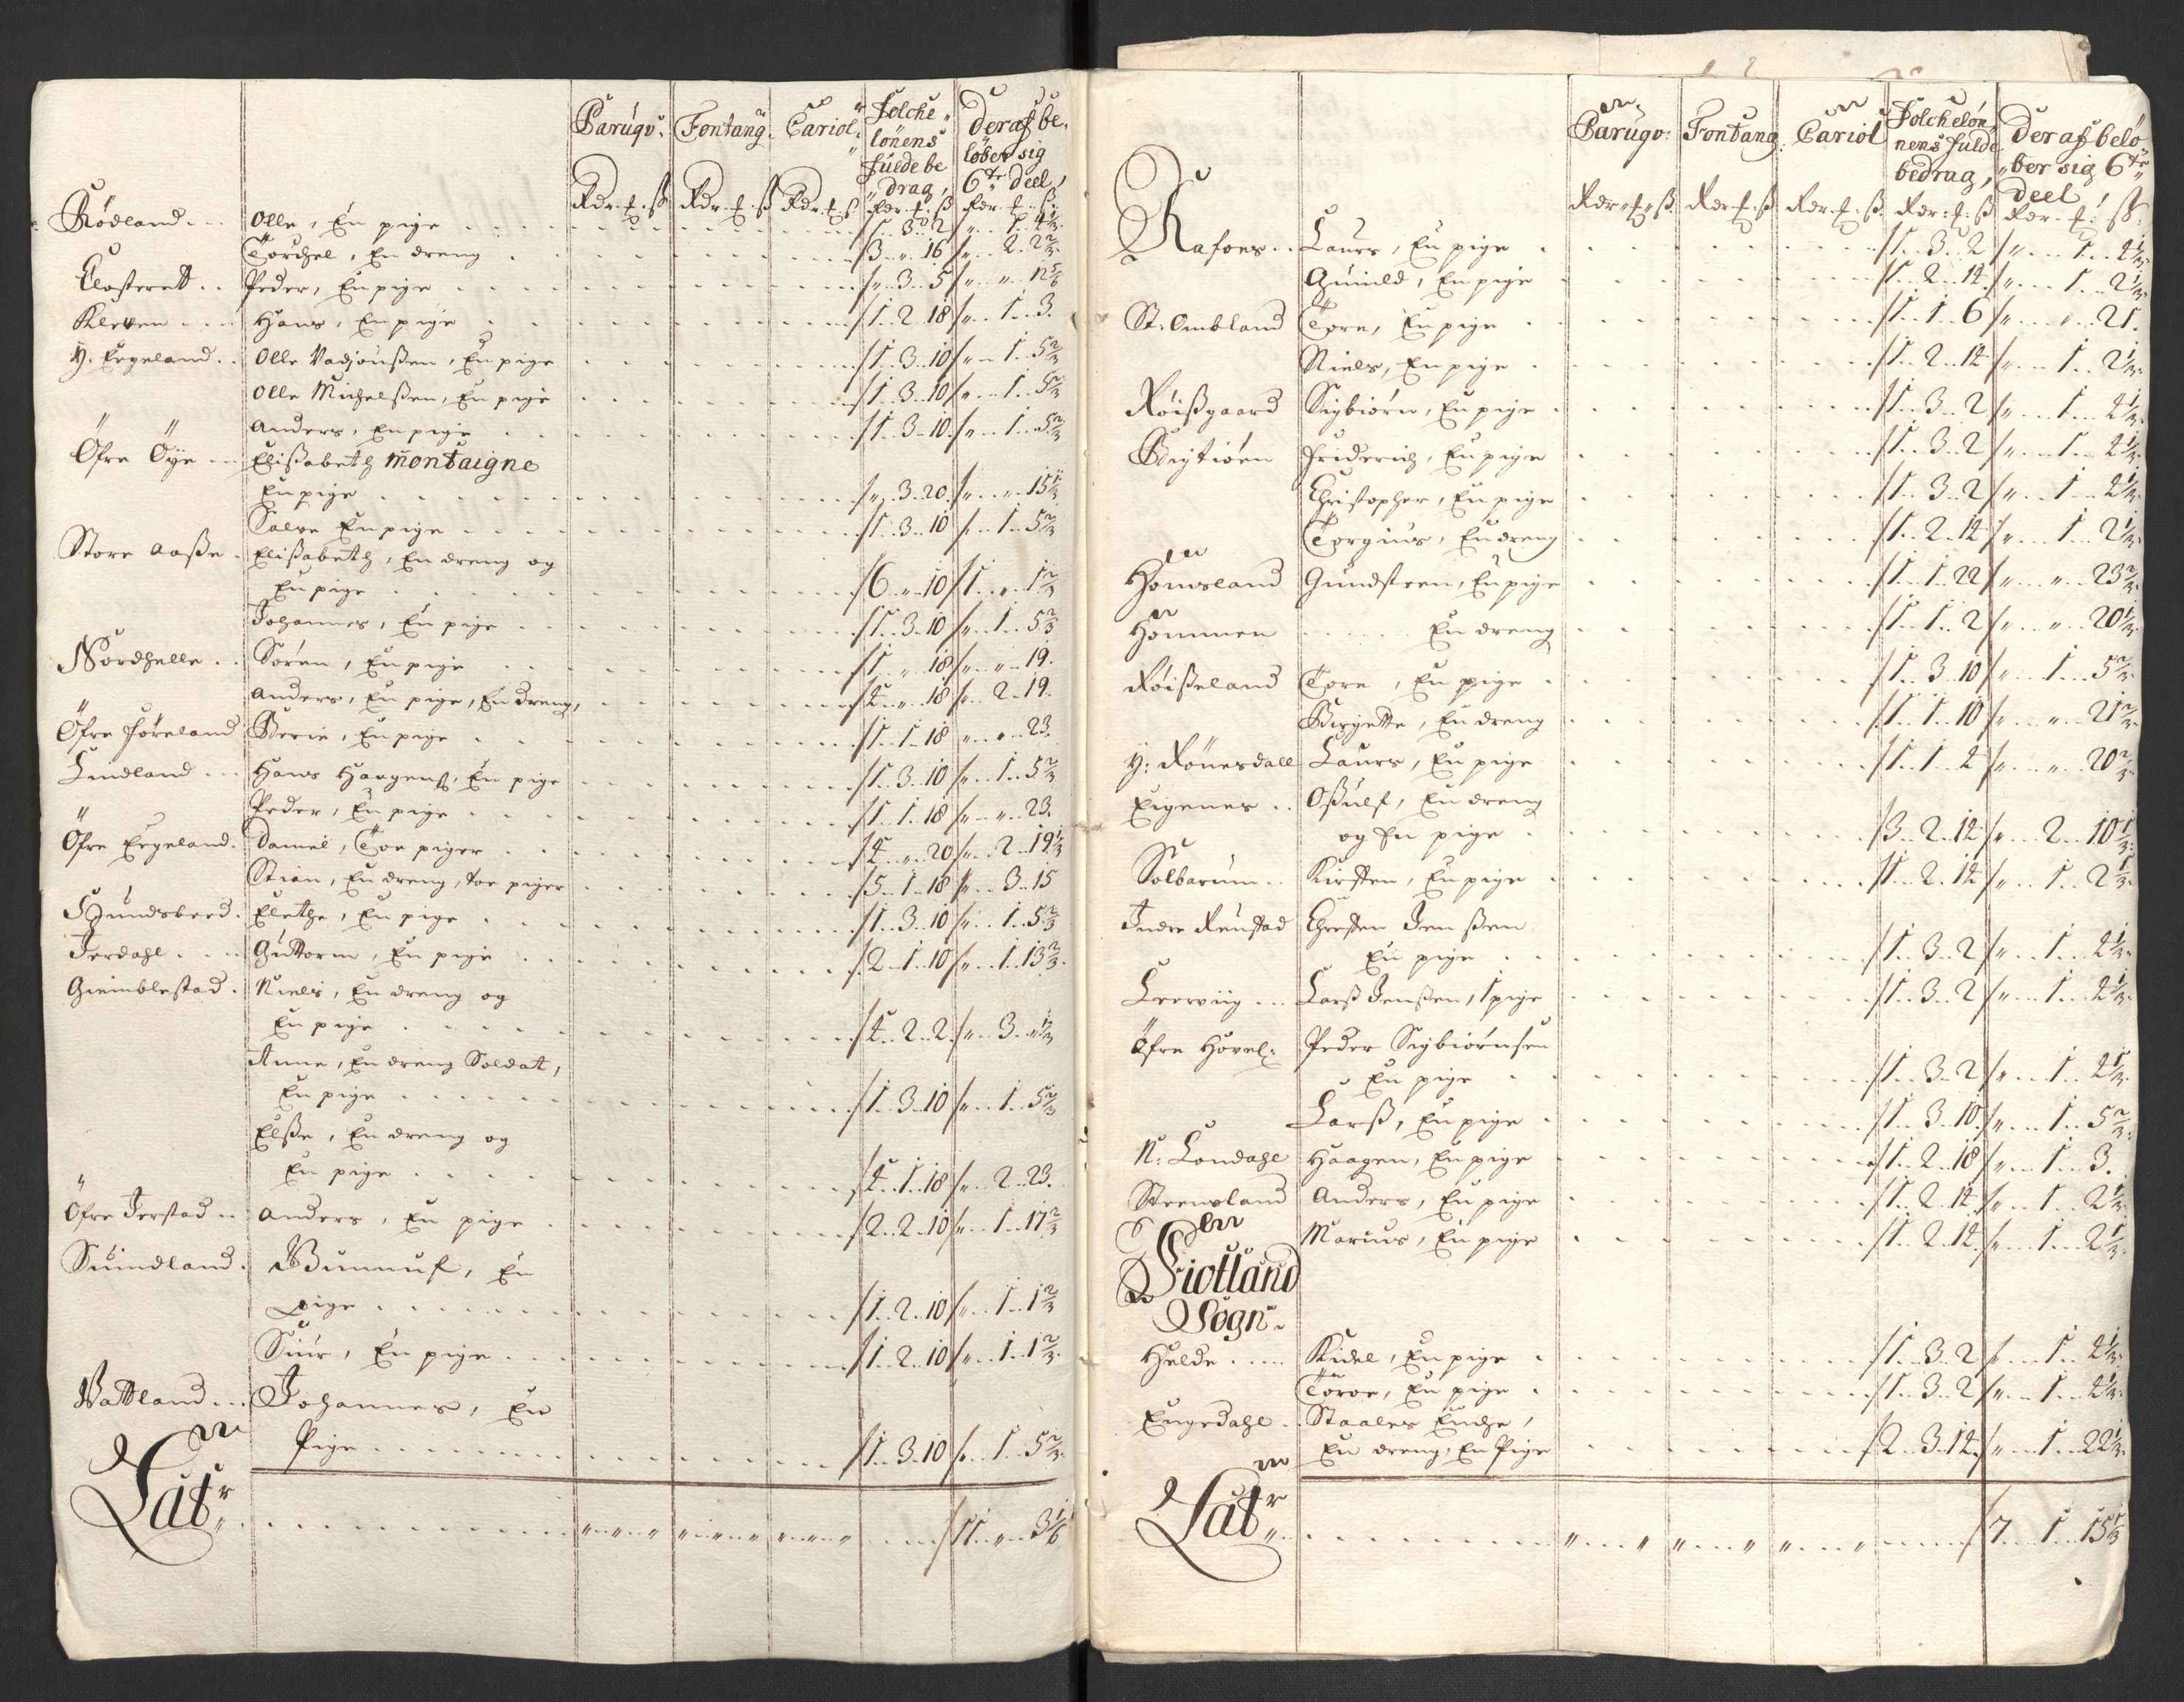 Paruqv: Fontang. Cariol: Folche lönens fulde be drag, Der af be, löber sig 6te deel,
Rdr. ₰. ß Rdr. ₰. ß Rdr. ₰. ß Rdr. ₰. ß Rdr. ₰. ß
Rödland Olle, En pige 1 3 2 " 1 4 1/3
Torchel, En dreng 3 " 16 " 2 2 2/3
Closteret Peder, En pige " 3 5 " " 12 5/6
Kleven Hans, En pige 1 2 18 " 1 3
Y. Ergeland Olle Vadjonßen, En pige 1 3 10 " 1 5 2/3
Olle Michelßen, En pige 1 3 10 " 1 5 2/3
Anders, En pige 1 3 10 " 1 5 2/3
Öfre Öye Elißabeth Montaigne
En pige " 3 20 " " 15 1/3
Salve En pige 1 3 10 " 1 5 2/3
Store Aaße Elißabeth, En dreng og
En pige 6 " 10 1 " 1 2/3
Johannes, En pige 1 3 10 " 1 5 2/3
Nordhelle Sören, En pige 1 " 18 " " 19
Anders, En pige, En dreng, 4 " 18 " 2 19
Öfre Föreland Berie, En pige 1 1 18 " " 23
Lindland Hans Haagens, En pige 1 3 10 " 1 5 2/3
Peder, En pige 1 1 18 " " 23
Öfre Ergeland Daniel, Toe piger 4 " 20 " 2 19 1/3
Stian, En dreng, toe piger 5 1 18 " 3 15
Elethe, En pige 1 3 10 " 1 5 2/3
Jerdahl Guttorm, En pige 2 1 10 " 1 13 2/3
Gieimblestad Niels, En dreng og
En pige 4 2 2 " 3 " 1/3
Anne, En dreng Soldat,
En pige 1 3 10 " 1 5 2/3
Elße, En dreng og
En pige 4 1 18 " 2 23
Öfre Jerstad Anders, En pige 2 2 10 " 1 17 2/3
Suindland Gunnuf, En
pige 1 2 10 " 1 1 2/3
Siur, En pige 1 2 10 " 1 1 2/3
Vattland Johannes, En
Pige 1 3 10 " 1 5 2/3
Latr " " " " " " " " " 11 " 3 1/6
Paruqv: Fontang. Cariol Folchelön nens fulde bedrag, Der af belö ber sig 6te deel
Rdr. ₰. ß Rdr. ₰. ß Rdr. ₰. ß Rdr. ₰. ß Rdr. ₰. ß
Rafoes Laurs, En pige 1 3 2 " 1 4 1/3
Gunild, En pige 1 2 14 " 1 2 1/3
St. Ombland Tore, En pige 1 1 6 " " 21
Niels, En pige 1 2 14 " 1 2 1/3
Röißgaard Sigbiörn, En pige 1 3 2 " 1 4 1/3
Friderich, En pige 1 3 2 " 1 4 1/3
Christopher, En pige 1 3 2 " 1 4 1/3
Torgius, En dreng 1 2 14 " 1 2 1/3
Homsland Gundsteen, En pige 1 1 22 " " 23 2/3
Hommen En dreng 1 1 2 " " 20 1/3
Röißeland Tore, En pige 1 3 10 " 1 5 2/3
Birgette, En dreng 1 1 10 " " 21 2/3
Y: Rönesdall Laurs, En pige 1 1 4 " " 20 2/3
Eigenes Oßulf, En dreng
og En pige 3 2 14 " 2 10 1/3
Solbarum Kirsten, En pige 1 2 14 " 1 2 1/3
Indre Reustad Christen Jenßen
En pige 1 3 2 " 1 4 1/3
Leervig Larß Jenßen, 1 pige 1 3 2 " 1 4 1/3
Öfre Hövel: Peder Sigbiörnsen
En pige 1 3 2 " 1 4 1/3
Larß, En pige 1 3 10 " 1 5 2/3
N: Londahl Haagen, En pige 1 2 18 " 1 3
Steensland Anders, En pige 1 2 14 " 1 2 1/3
Marius, En pige 1 2 14 " 1 2 1/3
Fiotland
Sogn
Helde Kidel, En pige 1 3 2 " 1 4 1/3
Torve, En pige 1 3 2 " 1 4 1/3
Engedahl Staales Enche,
En dreng, En Pige 2 3 14 " 1 22 1/3
Latr " " " " " " 7 1 15 1/3